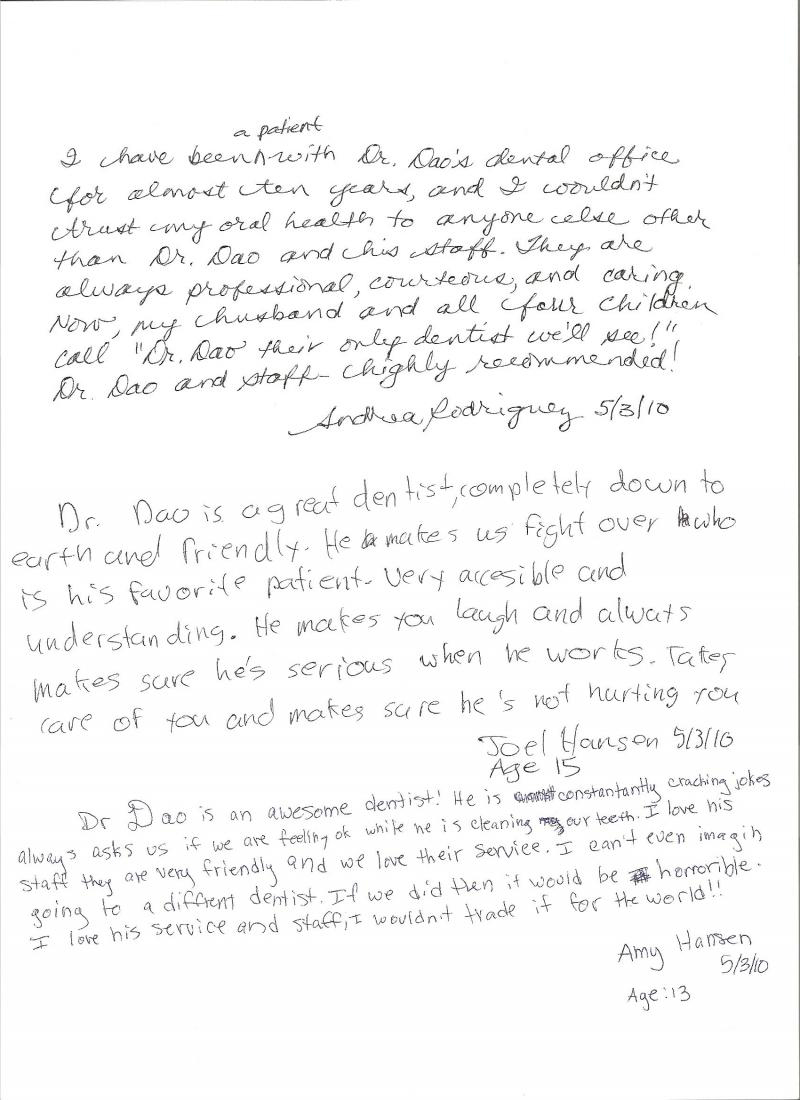 a patient
I have been ^ with Dr. Dao's dental office
for almost ten years, and I wouldn't
trust my oral health to anyone else other
than Dr. Dao and his staff. They are
always professional, courteous, and caring.
Now, my husband and all four children
call "Dr. Dao their only dentist we'll see!"
Dr. Dao and staff - highly recommended!
Andrea Rodriguez 5/3/10
Dr. Dao is a great dentist, completely down to
earth and friendly. He makes us fight over who
is his favorite patient. Very accesible and
understanding. He makes you laugh and always
makes sure he's serious when he works. Takes
care of you and makes sure he's not hurting you
Joel Hansen 5/3/10
Age 15
Dr Dao is an awesome dentist! He is constantantly cracking jokes
always asks us if we are feeling ok while he is cleaning our teeth. I love his
staff they are very friendly and we love their service. I can't even imagin
going to a diffrent dentist. If we did then it would be horrorible.
I love his service and staff, I wouldn't trade it for the world!!
Amy Hansen
5/3/10
Age: 13